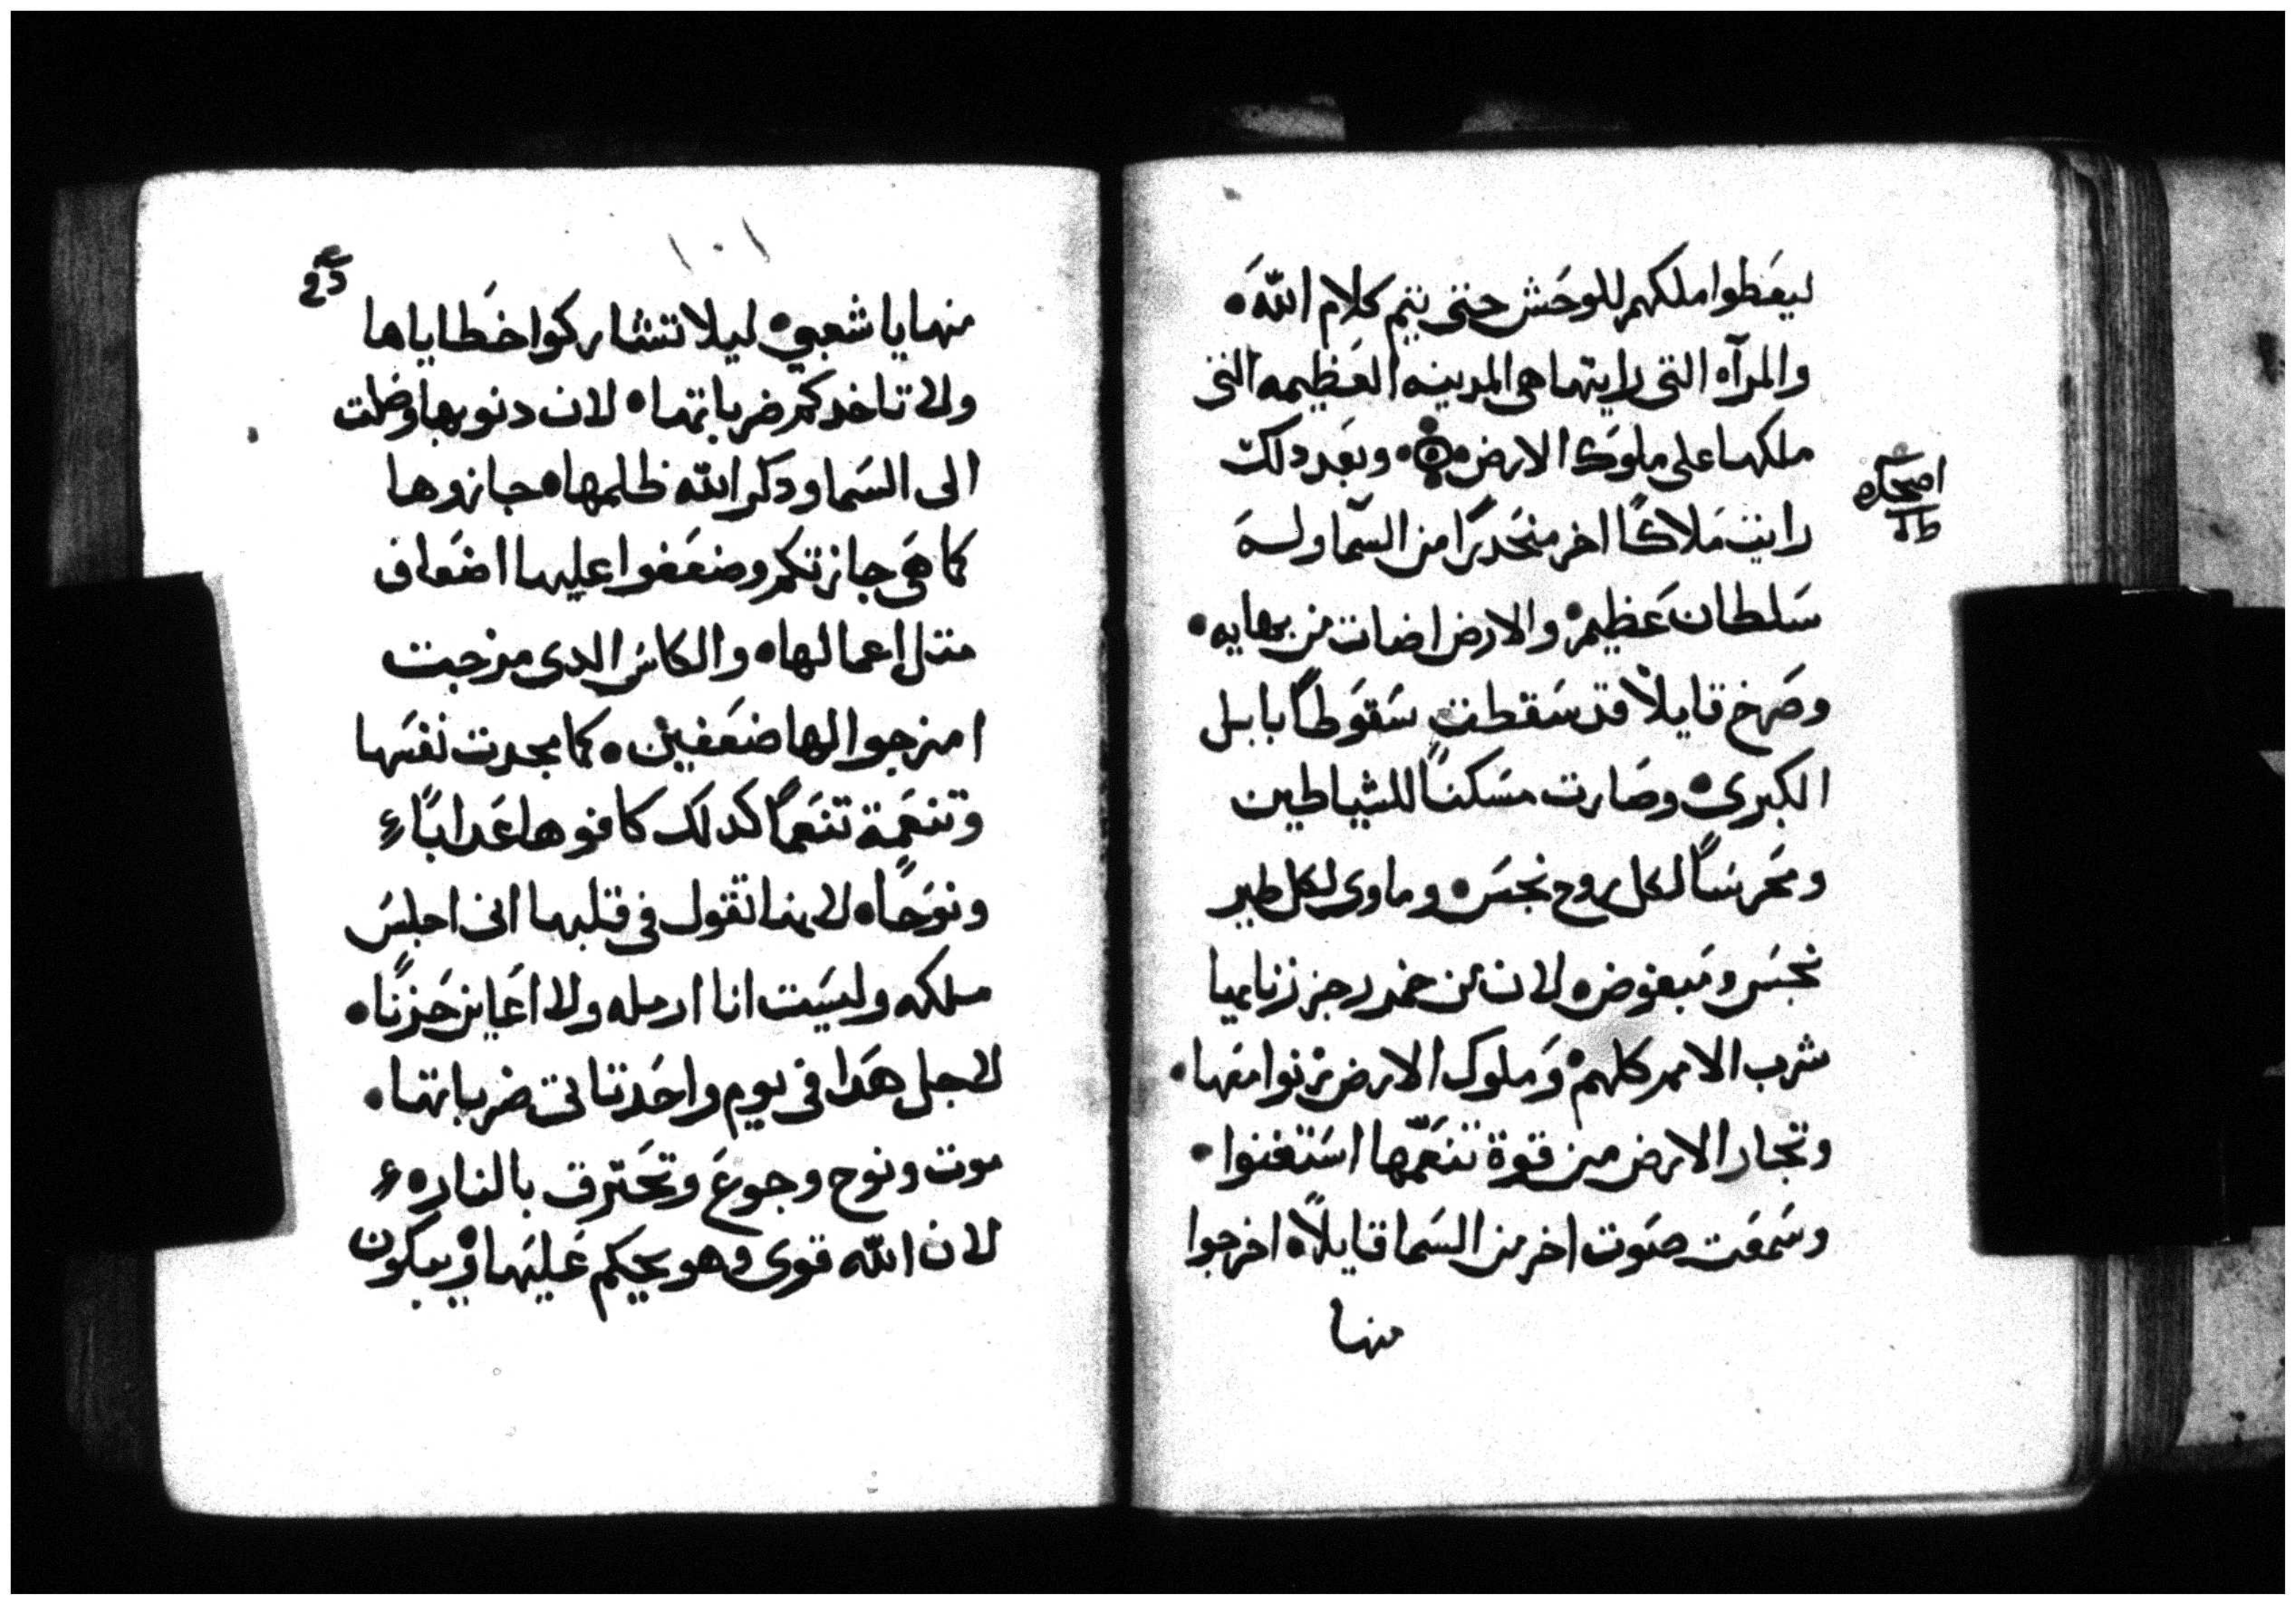 ليعَطوا ملكهم للوحَش حتى يتم كلام اللهَ •
والمرآه التى رايتها هى المدينه العَظيمه التى
ملكها على ملوك الارض • وبعَد دلك
اصحاح
رايت مَلاكًا اخر منحَدرًا من السّما ولهَ
سَلطان عَظيم • والارض اضات من بهايه •
وصَرخ قايلاً قد سَقطت سَقوَطاً بابل
الكبرى • وصَارت مسَكنًا للشياطين
ومَحرسَاً لكل روح نجسَ • وماوى لكل طير
نجسَ ومَبغوض • لان من خمر رجز زناييها
شرب الامم كلهم • وَملوك الارض زنوا معَها •
وتجار الارض من قوة تنعَمّها اسَتغنوا •
وسَمعَت صَوت اخر من السَما قايلاً • اخرجوا
منها
١٠١
منها يا شعبي • ليلا تتشاركوا خطاياها
ولا تاخدكم ضرباتها • لان دنوبها وصَلت
الى السَما ودكر الله ظلمها • جازوها
كما هَى جازتكم وضعَفوا عليها اضعَاف
متل اعمالها • والكاسَ الدى مزجت
امزجوا لها ضعَفين • كما مجدت نفسَها
وتنعَمة تنعَماً كدلك كافوها عَداباً
ونوَحًا • لانها تقول فى قلبها انى اجلسَ
ملكه وليسَت انا ارمله ولا اعَاين حَزنًا •
لاجل هَدا فى يوم واحَد تاتى ضرباتها •
موت ونوح وجوعَ وتحَترق بالنار •
لان الله قوى وهو يحكم عَليهَا • ويبكون